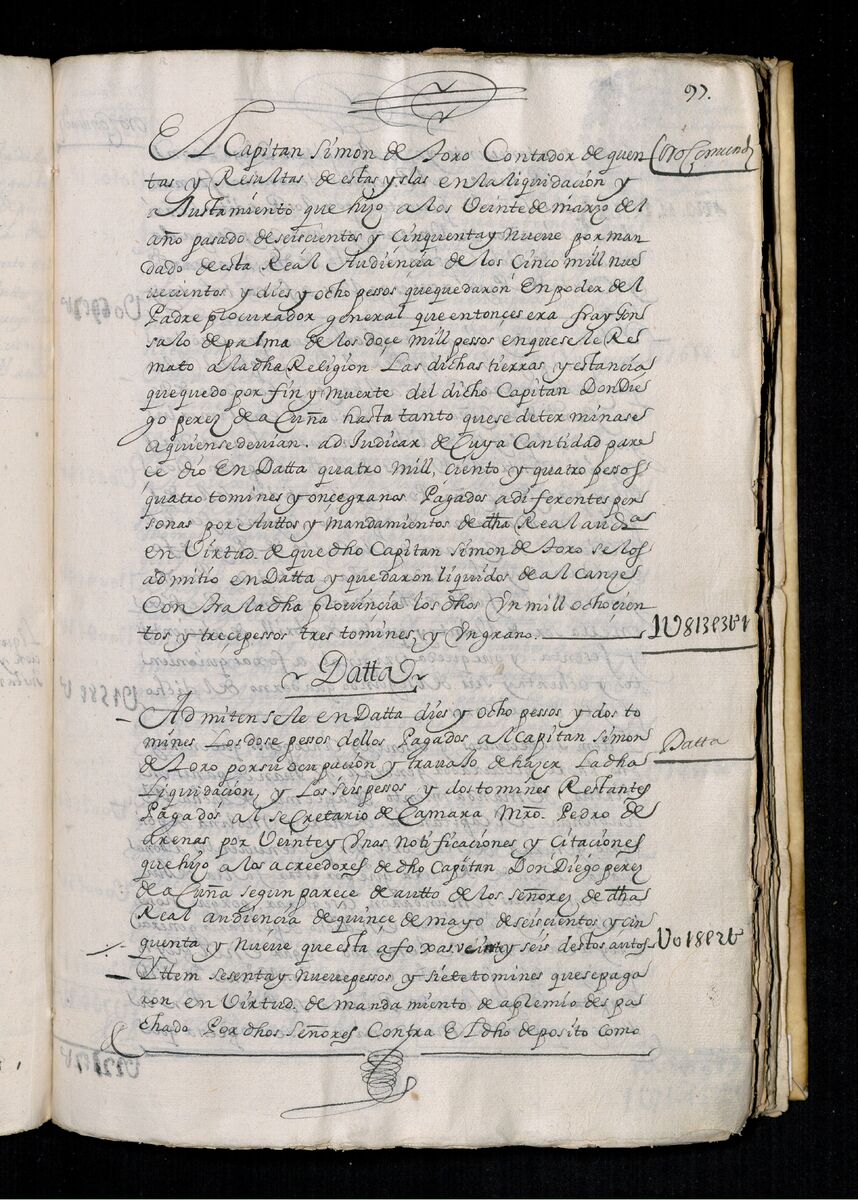 97.
El Capitan Simon de Toro Contador de quen
tas y Resultas de estas yslas en la liquidación y
aJustamiento que hizo a los Veinte de março del
año pasado de seiscientos y Cinquenta y Nueve por man
dado de esta Reál Audiéncia de los Cinco mill nue
vecientos y dies y ocho pesos que quedarón En poder del
Padre procurador general que entonçes era fray Gon
salo de palma de los doçe mill pesos en que se le Re
mato a la dha Religion Las dichas tierras y estançia
que quedo por fin y muerte del dicho Capitan Don Die
go perez de aCuña hasta tanto que se determinase
a quien se devian. adJudicar de Cuya Cantidad pare
çe dio En Datta quatro mill, ciento y quatro pessos
quatro tomines y onçe granos Págados a diferentes per
sonas por Auttos y mandamientos de dha Real auda
en Virtud. de que dho Capitan Simon de Toro se los
admitio en Datta y quedaron liquidos de alcanze
Contra la dha provinçia los dhos Vn mill ochocien
tos y treçe pessos tres tomines, y Vn grano.
Datta
Admitensele en Datta dies y ocho pessos y dos to
mines Los dose pessos dellos Pagados al Capitan Simon
de Toro por su ocupación y travaJo de hazer La dha
Liquidación, y Los séis pessos y dos tomines Restantes
Pagádos al seCretario de Camara Mro. Pedro de
arenas por Veinte y Vnas Notificaciones y Citaciones
que hizo a los acreedores de dho Capitan Don Diego perez
de aCuña segun pareçe de autto de los señores de dha
Real audiencia de quinçe de mayo de seiscientos y cin
quenta y Nuéve que está a foxas veinte y séis destos autos
Yttem sesenta y Nueve pessos y siéte tomines que se paga
ron en Virtud. de mandamiento de apremio des pa
chado Por dhos Señores Contra El dho deposito como
Datta